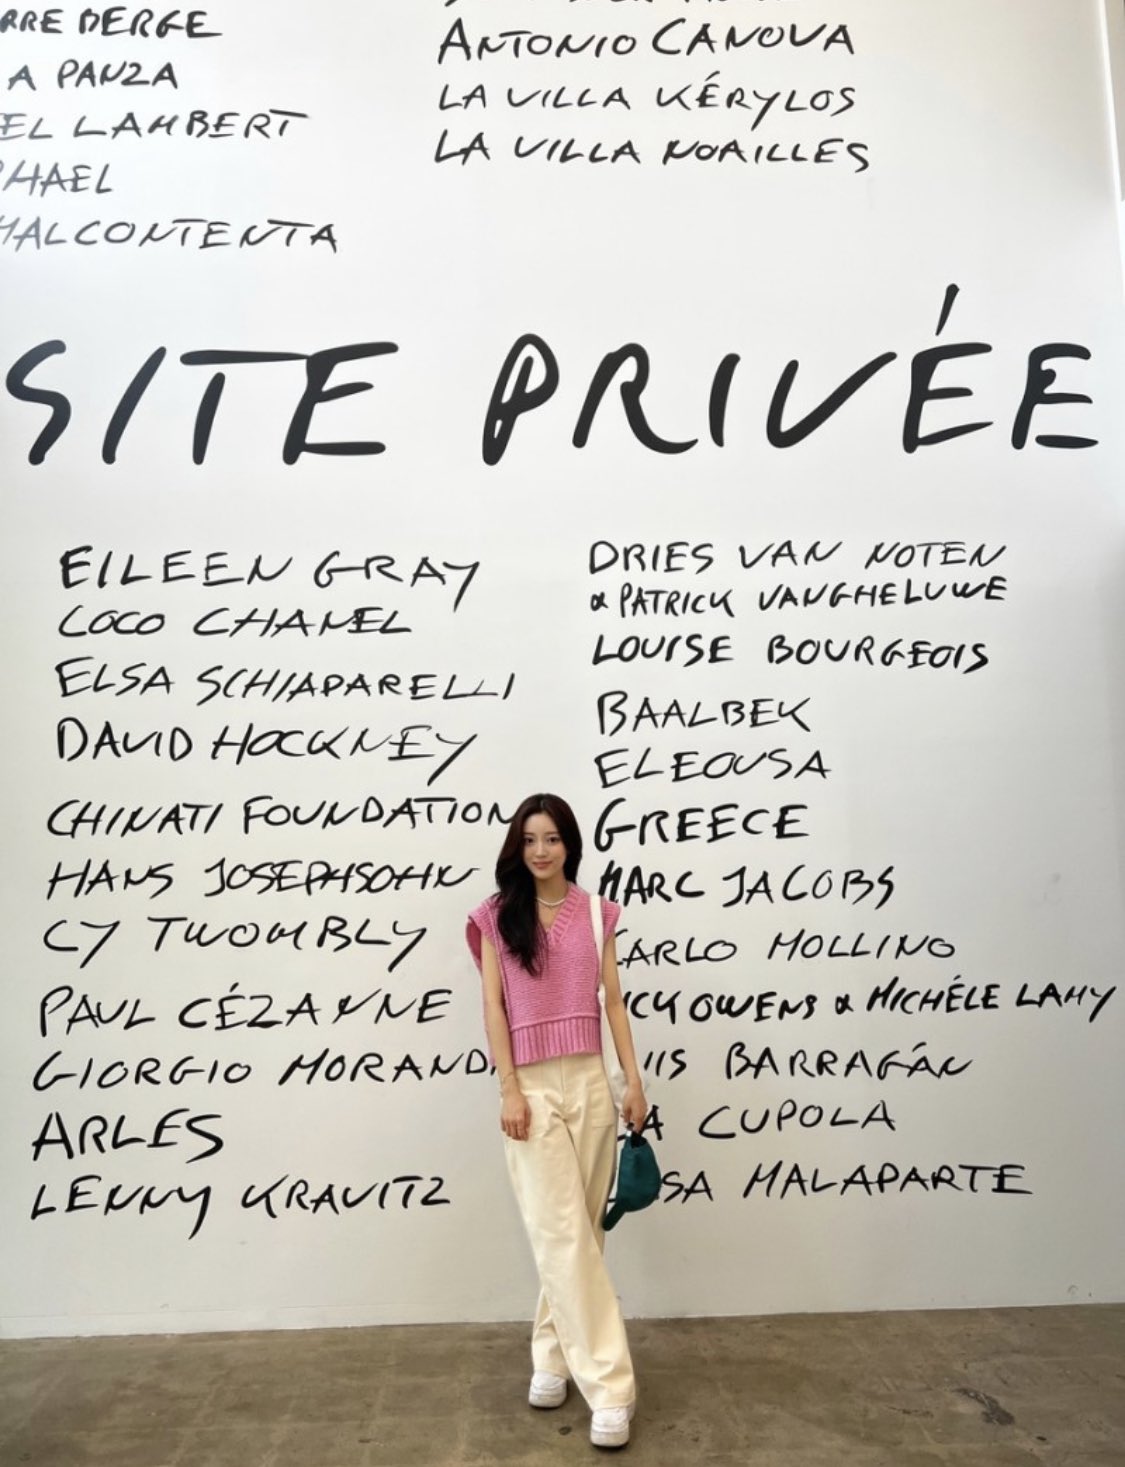 BERGE
A PANZA
LAMBERT
MALCONTENTA
ANTONIO CANOVA
LA VILLA KÉRYLOS
LA VILLA NOAILLES
SITE PRIVÉE
EILEEN GRAY
COCO CHANEL
ELSA SCHIAPARELLI
DAVID HOCKNEY
CHINATI FOUNDATION
HANS JOSEPHSOHN
CY TWOMBLY
PAUL CÉZANNE
GIORGIO MORANDI
ARLES
LENNY KRAVITZ
DRIES VAN NOTEN
& PATRICK VANGHELUWE
LOUISE BOURGEOIS
BAALBEK
ELEOUSA
GREECE
MARC JACOBS
CARLO MOLLINO
OWENS & MICHÉLE LAMY
BARRAGÁN
CUPOLA
MALAPARTE